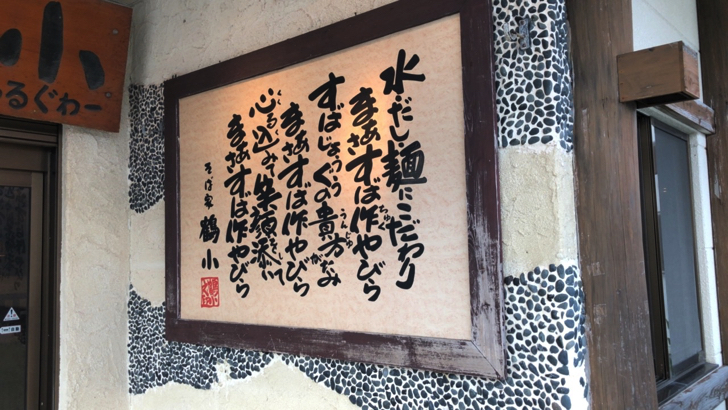 小
るぐゎー
水だし麺にこだわり
まぁささすば作やびら
すばじょうぐの貴方なみが
まぁささすば作やびら
心る込みて笑顔添いて
まぁささすば作やびら
そば家 鶴小